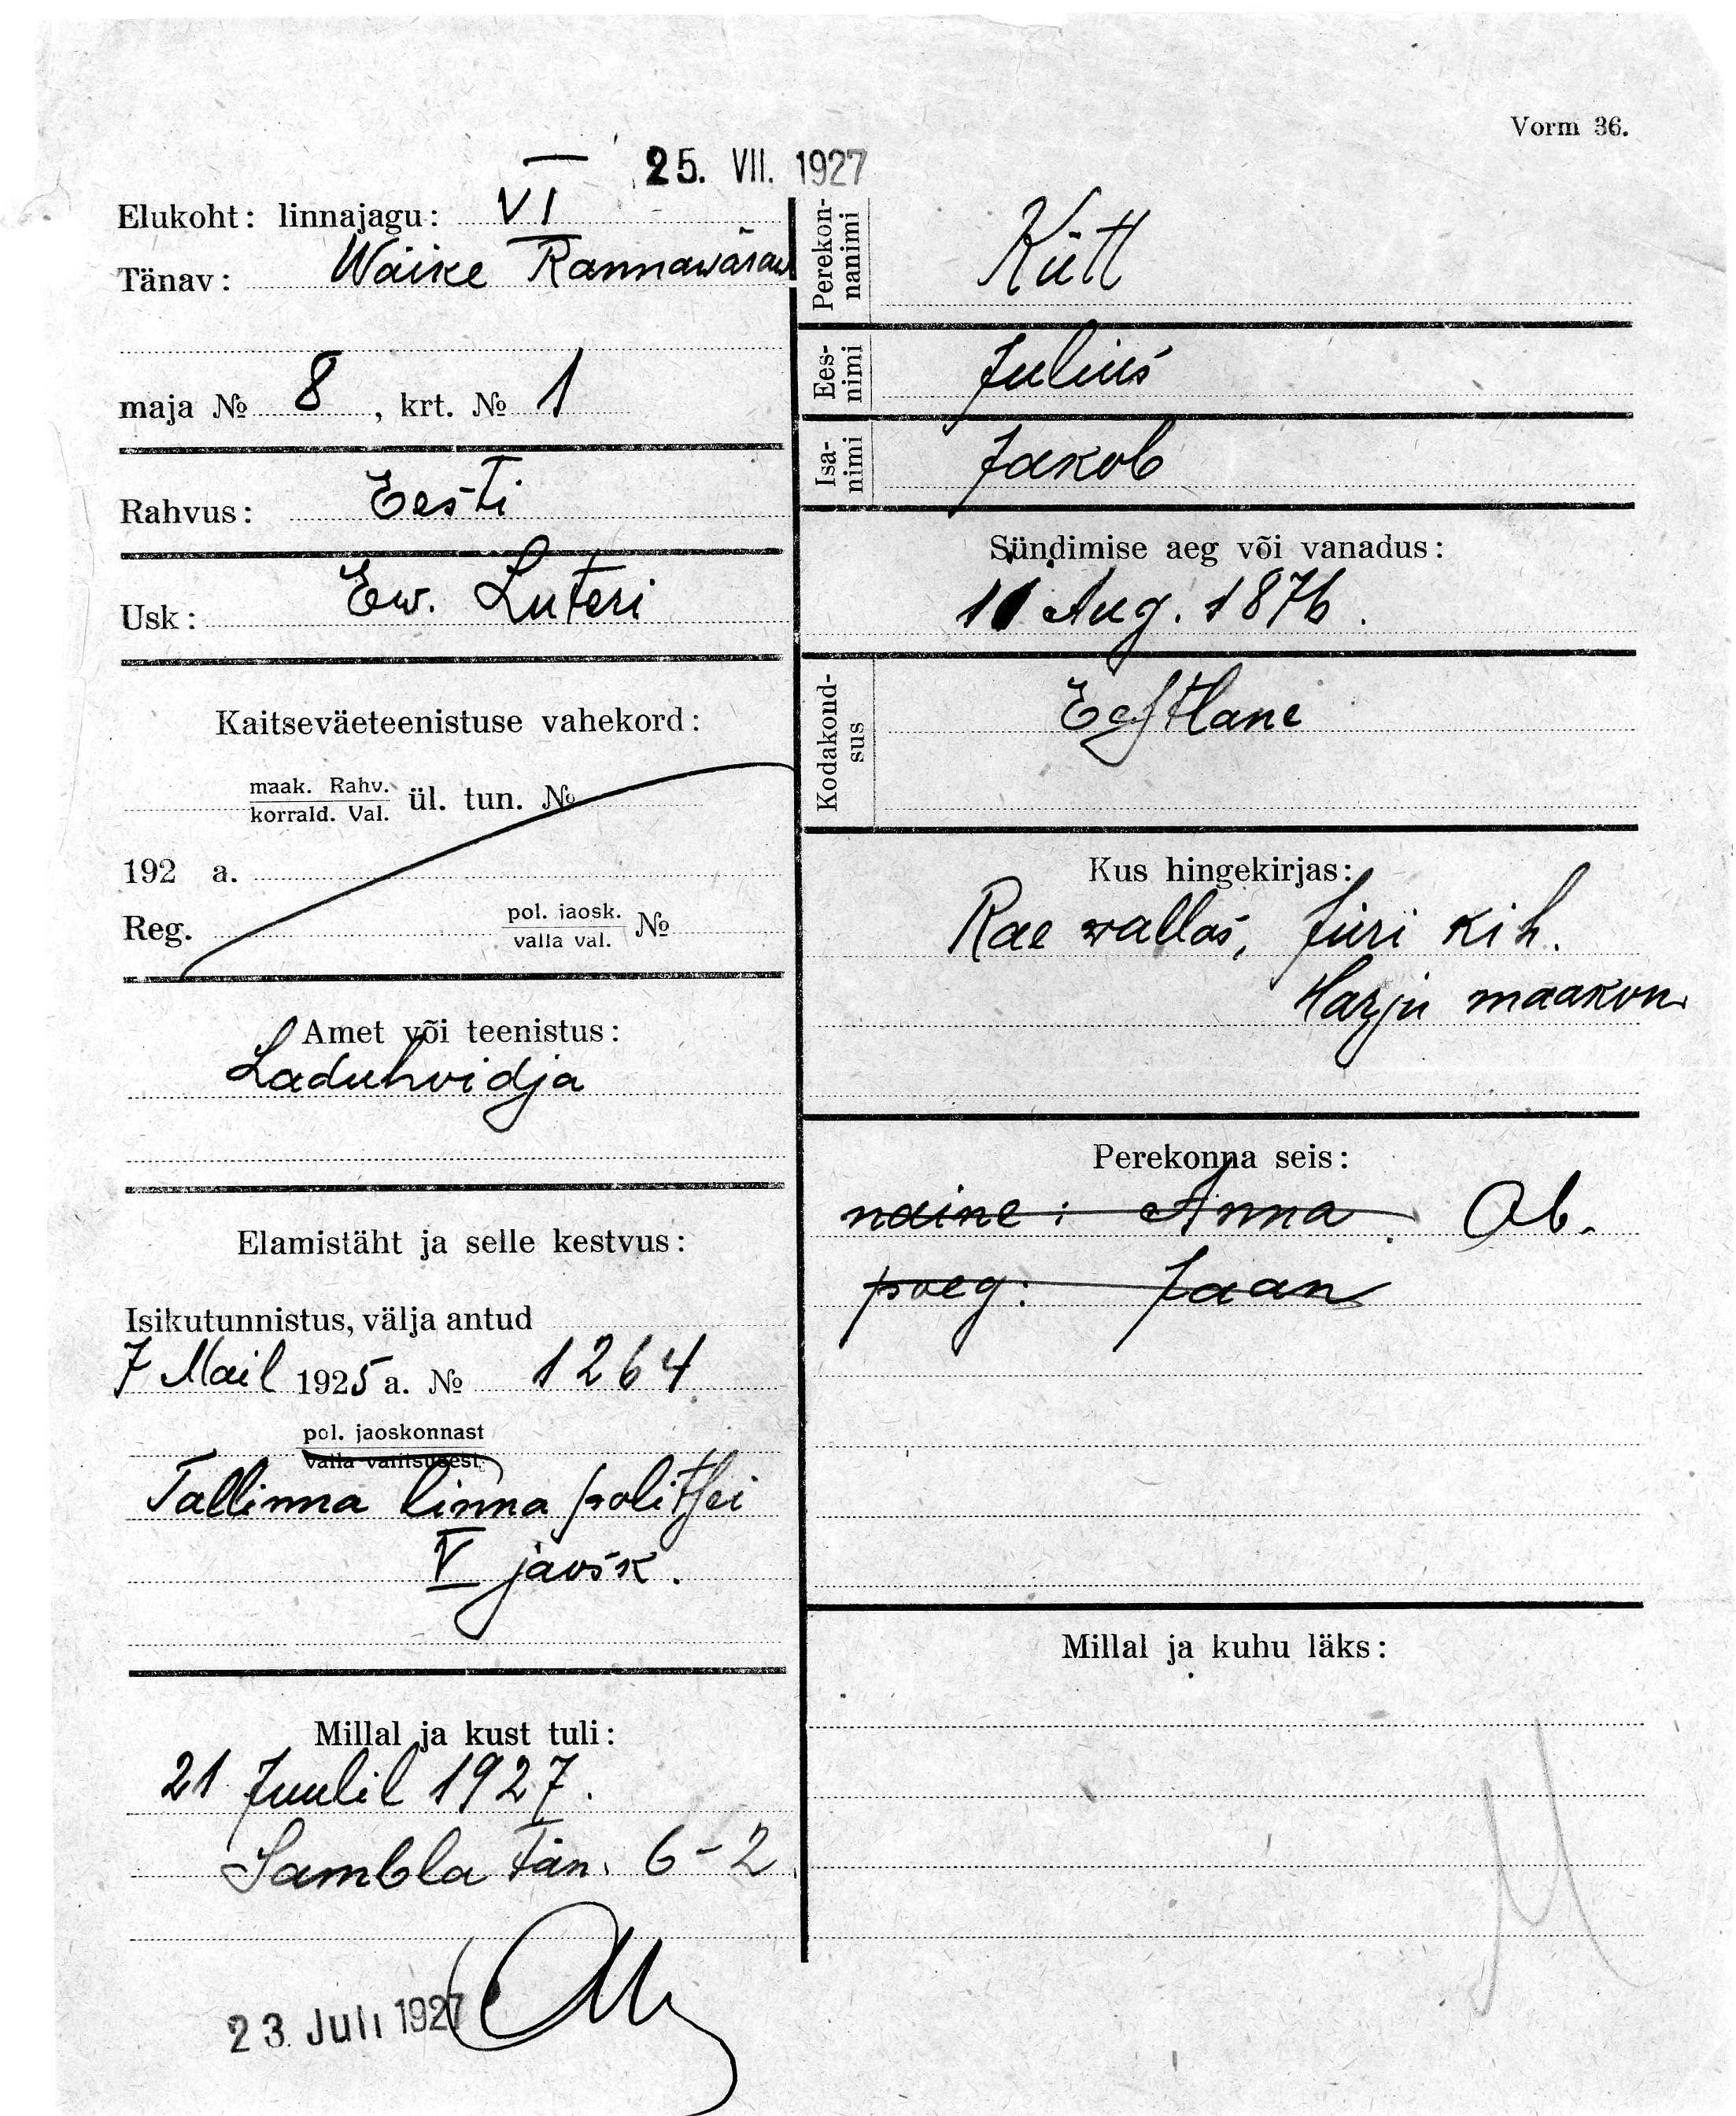 Vorm 36.
25. VII. 1927
Elukoht: linnajagu: VI
Tänav: Wäike Rannawäraw
maja № 8, krt. № 1
Rahvus: Eesti
Usk: Ew. Luteri
Kaitseväeteenistuse vahekord:
maak. Rahv.
korrald. Val. ül. tun. №
192 a.
Reg. pol. jaosk.
valla val. №
Amet või teenistus:
Laduhoidja
Elamistäht ja selle kestvus:
Isikutunnistus, välja antud
7 Mail 1925 a. № 1264
pol. jaoskonnast
valla valitsusest
Tallinna linna politsei
V jaosk.
Millal ja kust tuli:
21 Juulil 1927.
Sambla tän. 6-2
23. Juli 1927
Perekon-
nanimi
Kütt
Ees-
nimi
Julius
Isa-
nimi
Jakob
Sündimise aeg või vanadus:
11 Aug. 1876.
Kodakond-
sus
Eestlane
Kus hingekirjas:
Rae wallas, Jüri kih.
Harju maakon.
Perekonna seis:
naine: Anna Ab.
poeg: Jaan
Millal ja kuhu läks: